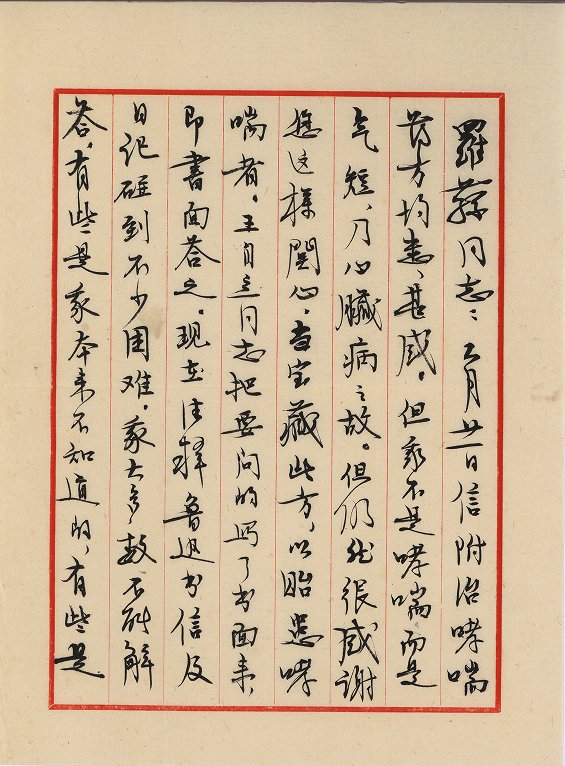 羅蓀同志：二月廿一日信附治哮喘
药方均悉，甚感。但我不是哮喘而是
气短，乃心臟病之故。但仍然很感谢
您这样関心，当宝藏此方，以贻患哮
喘者。王自立同志把要问的写了书面来，
即書面荅之。现在注释鲁迅书信及
日记碰到不少困难，我大多数不能解
荅，有些是我本来不知道的，有些是